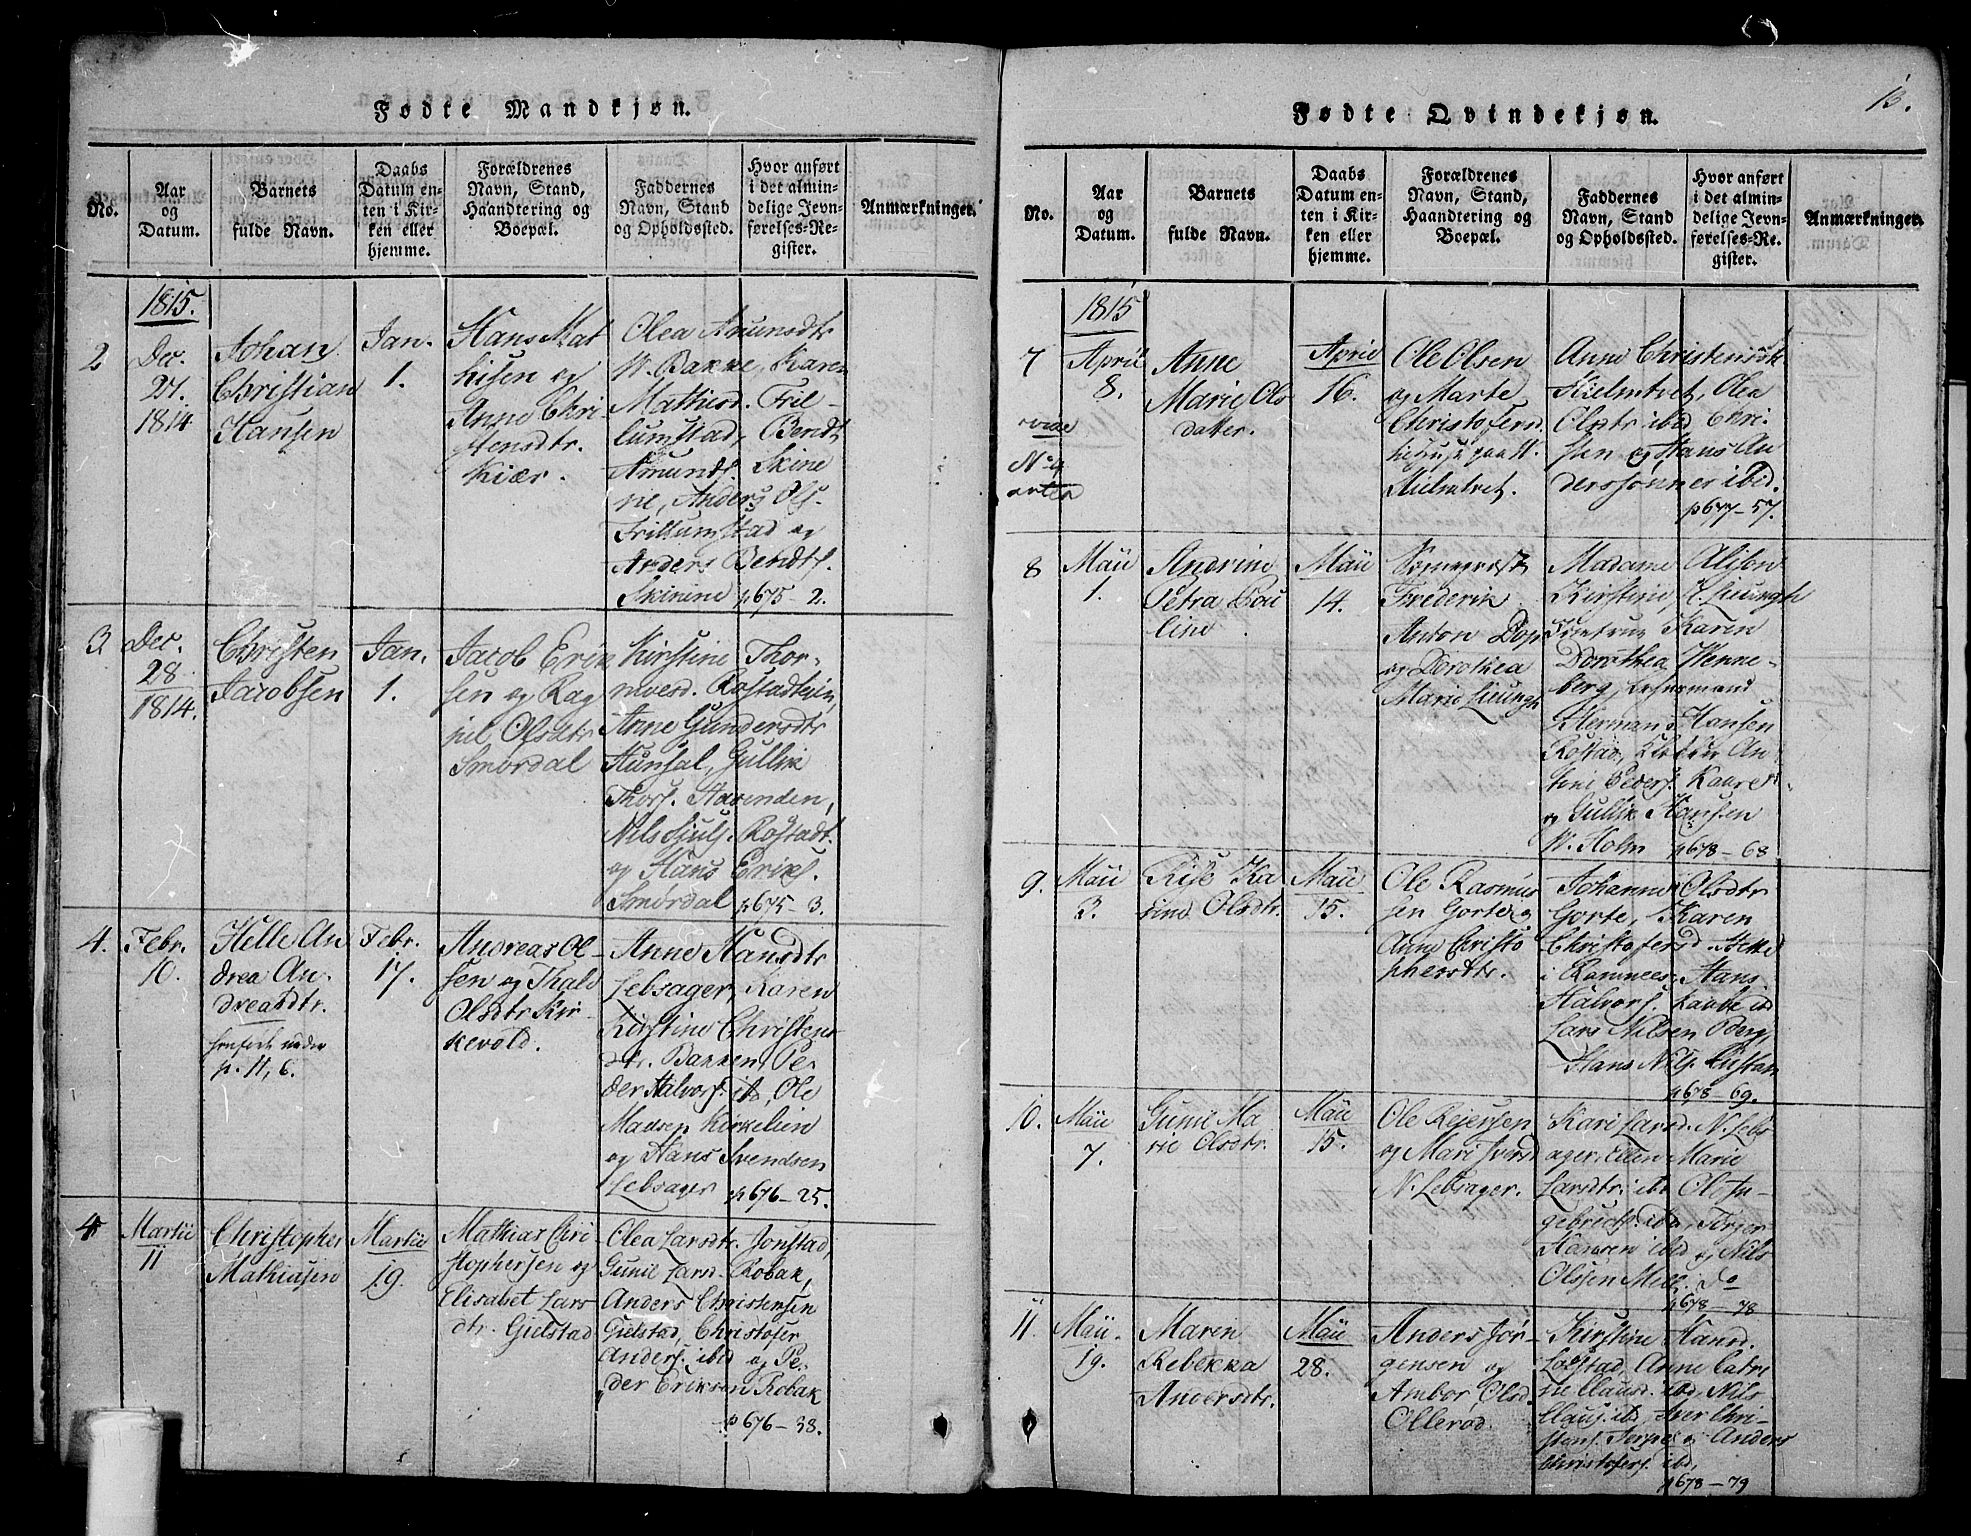 Fødte Mandkjøn.
No.
Aar
og
Datum.
Barnets
fulde Navn.
Daabs
Datum en-
ten i Kir-
ken eller
hjemme.
Forældrenes
Navn, Stand,
Haandtering og
Boepæl.
Faddernes
Navn, Stand
og Opholdssted.
Hvor anført
i det almin-
delige Jevn-
førelses-Re-
gister.
Anmærkninger.
1815.
2
Dec.
27.
1814
Johan
Christian
Hansen
Jan.
1.
Hans Mat
hisen og
Anne Chri
stensdtr.
Kiær.
Olea Amunsdtr
N. Bakke, Karen
Mathisd. Fril-
lumstad, Bendt
Amunds. Skine
ne, Anders Ols.
Frillumstad og
Anders Bendts.
Skinine p 675-2.
3
Dec.
28
1814.
Christen
Jacobsen
Jan.
1.
Jacob Erik
sen og Rag
nil Olsdtr
Smørdal
Kirstine Thor-
moesd. Røstadteien,
Anne Gundersdtr
Hunsal, Gullik
Thors. Havenden,
Nils Juls. Røstadt.
og Hans Eriks.
Smørdal p 675-3.
4.
Febr.
10.
Helle An
drea An-
dreasdtr.
henførte under
p. 11, 6.
Febr.
17.
Andreas Ol-
sen og Thale
Olsdtr Kir-
kevold.
Anne Hansdtr
Lebsager, Karen
Kirstine Christens
dtr. Bakken, Pe-
der Halvors. ibd, Ole
Madsen Kirkeliien
og Hans Svendsen
Lebsager p 676-25.
4
Martii
11
Christopher
Mathiasen
Martii
19.
Mathias Chri
stophersen og
Elisabet Lars
dtr. Gielstad
Olea Larsdtr. Jonstad,
Gunil Larsd. Robak,
Anders Christensen
Gielstad, Christofer
Anders. ibd og Pe-
der Eriksen Robak
p 676-38.
Fødte Qvindekjøn.
13.
No.
Aar
og
Datum.
Barnets
fulde Navn.
Daabs
Datum en-
ten i Kir-
ken eller
hjemme.
Forældrenes
Navn, Stand,
Haandtering og
Boepæl.
Faddernes
Navn, Stand
og Opholdssted.
Hvor anført
i det almin-
delige Jevn-
førelses-Re-
gister.
Anmærkninger.
1815
7
vide
No 9
April
8.
Anne
Marie Ols
datter.
April
16.
Ole Olsen
og Marte
Christofersd.
Hielmtvet.
Anne Christensdtr
Hielmtvet, Olea
Olsdtr ibd Chri-
sten og Hans An
derssønner ibid.
p 677-57.
8
Maii
1.
Andrine
Petra Pou
line
Maii
14.
Frederik
Anton Dop
og Dorothea
Marie Lieungh
Madame Alison
Kirstine, K. Lieungh
Jomfrue Karen
Dorothea Wenne-
berg,
Herman Hansen
Røstad, An
Peders.
og Gullik Hansen
N. Holm p 678-68
9.
Maii
3.
Lise Ka
rine Olsdtr.
Maii
15.
Ole Rasmus
sen Gorte og
Anne Christo
phersdtr.
Johanne Olsdtr
Gorte, Karen
Christofersd.
i Hans
Halvors. ibd
Lars Nilsen Berg,
Hans Nils.
p 678-69.
10.
Maii
7.
Gunil Ma
rie Olsdtr.
Maii
15.
Ole Reiersen
og Mari Iversd
N. Lebsager.
Kari Larsd. N. Lebs
ager, Ellen Marie
Larsdtr. ibd Ole In-
gebrechts. ibd, Torger
Hansen ibd og Nils
Olssen Mell. do
p 678-78
11.
Maii.
19.
Maren
Rebekka
Andersdtr.
Maii
28.
Anders Jør-
gensen og
Ambor Olsd.
Ollerød.
Kirstine Hansd.
Løfstad, Anne Catri
ne Clausd. ibd, Nils
Claus. ibd, Iver Chri-
stens. Torpe og Anders
Christofers. ibd,
p 678-79